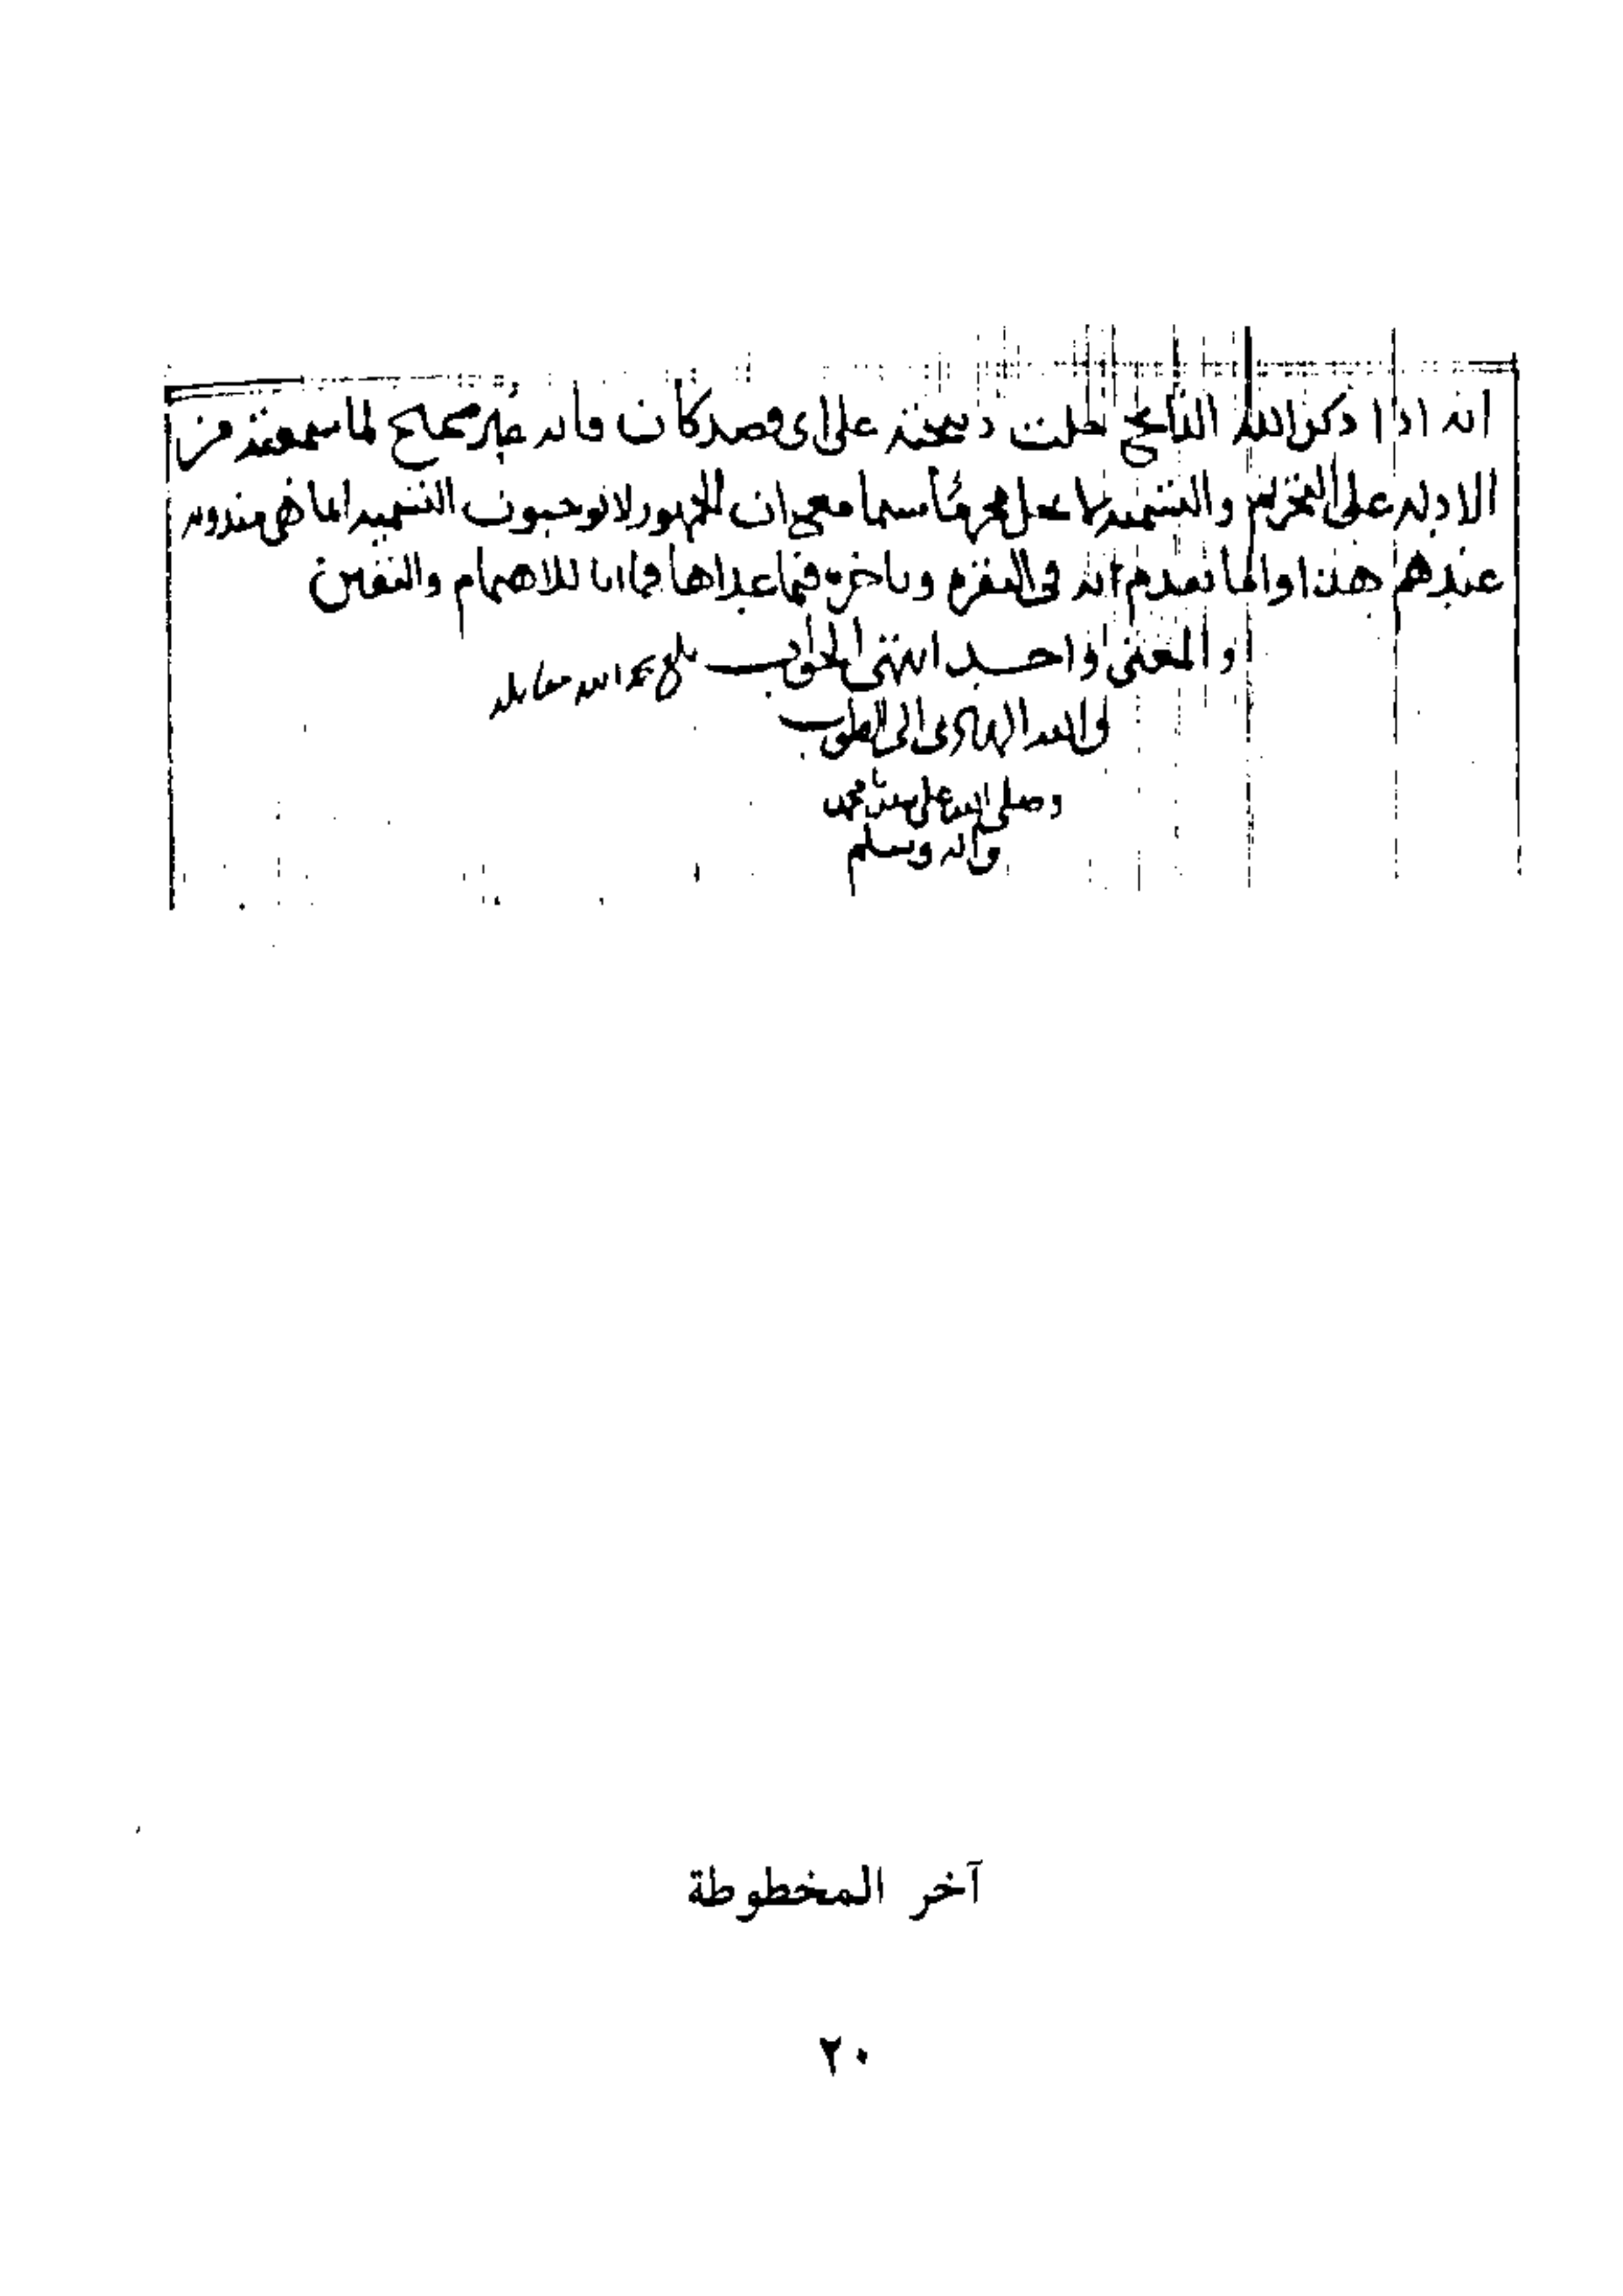 انه اذا ذكر الله الذابح حلت ذبيحته على اي قصد كان فانه غير صحيح لما سمعته من
الادله على التحريم والتسميه سيما مع ان الجمهور لا يوجبون التسميه انما هي مندوبه
عندهم هذا وانما في وتاخره فيما عداها للاهتمام والتفنن
او المعنى واحد انتهى الجواب بلغ بحمد الله مقابله
والله الهادي الى الصواب
وصلى الله على سيدنا محمد
واله وسلم
آخر المخطوطة
٢٠